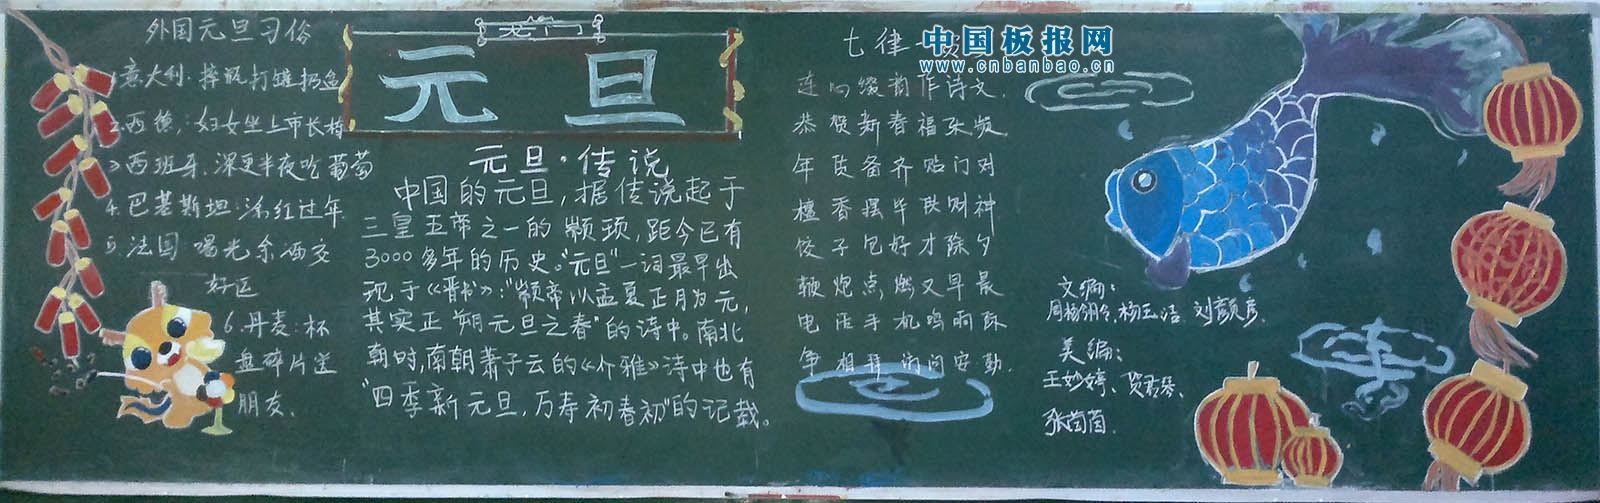 外国元旦习俗
1.意大利:摔瓶打罐扔盆
2.西德:妇女坐上市长椅
3.西班牙:深更半夜吃葡萄
4.巴基斯坦:涂红过年
5.法国:喝光余酒交
好运
6.丹麦:杯
盘碎片送
朋友、
元旦
元旦·传说
中国的元旦,据传说起于
三皇五帝之一的颛顼,距今已有
3000多年的历史。"元旦"一词最早出
现于《晋书》:"颛帝以孟夏正月为元,
其实正朔元旦之春"的诗中。南北
朝时,南朝萧子云的《介雅》诗中也有
"四季新元旦,万寿初春初"的记载。
七律
中国板报网
www.cnbanbao.cn
连心缀韵作诗文,
恭贺新春福来频
年货备齐贴门对
檀香摆毕供财神
饺子包好才除夕
鞭炮点燃又早晨
电话手机鸣响际
争相拜询问安勤.
文编:
杨玉洁 刘颜彦
美编:
王妙婷、贺若琴、
张茵茵.